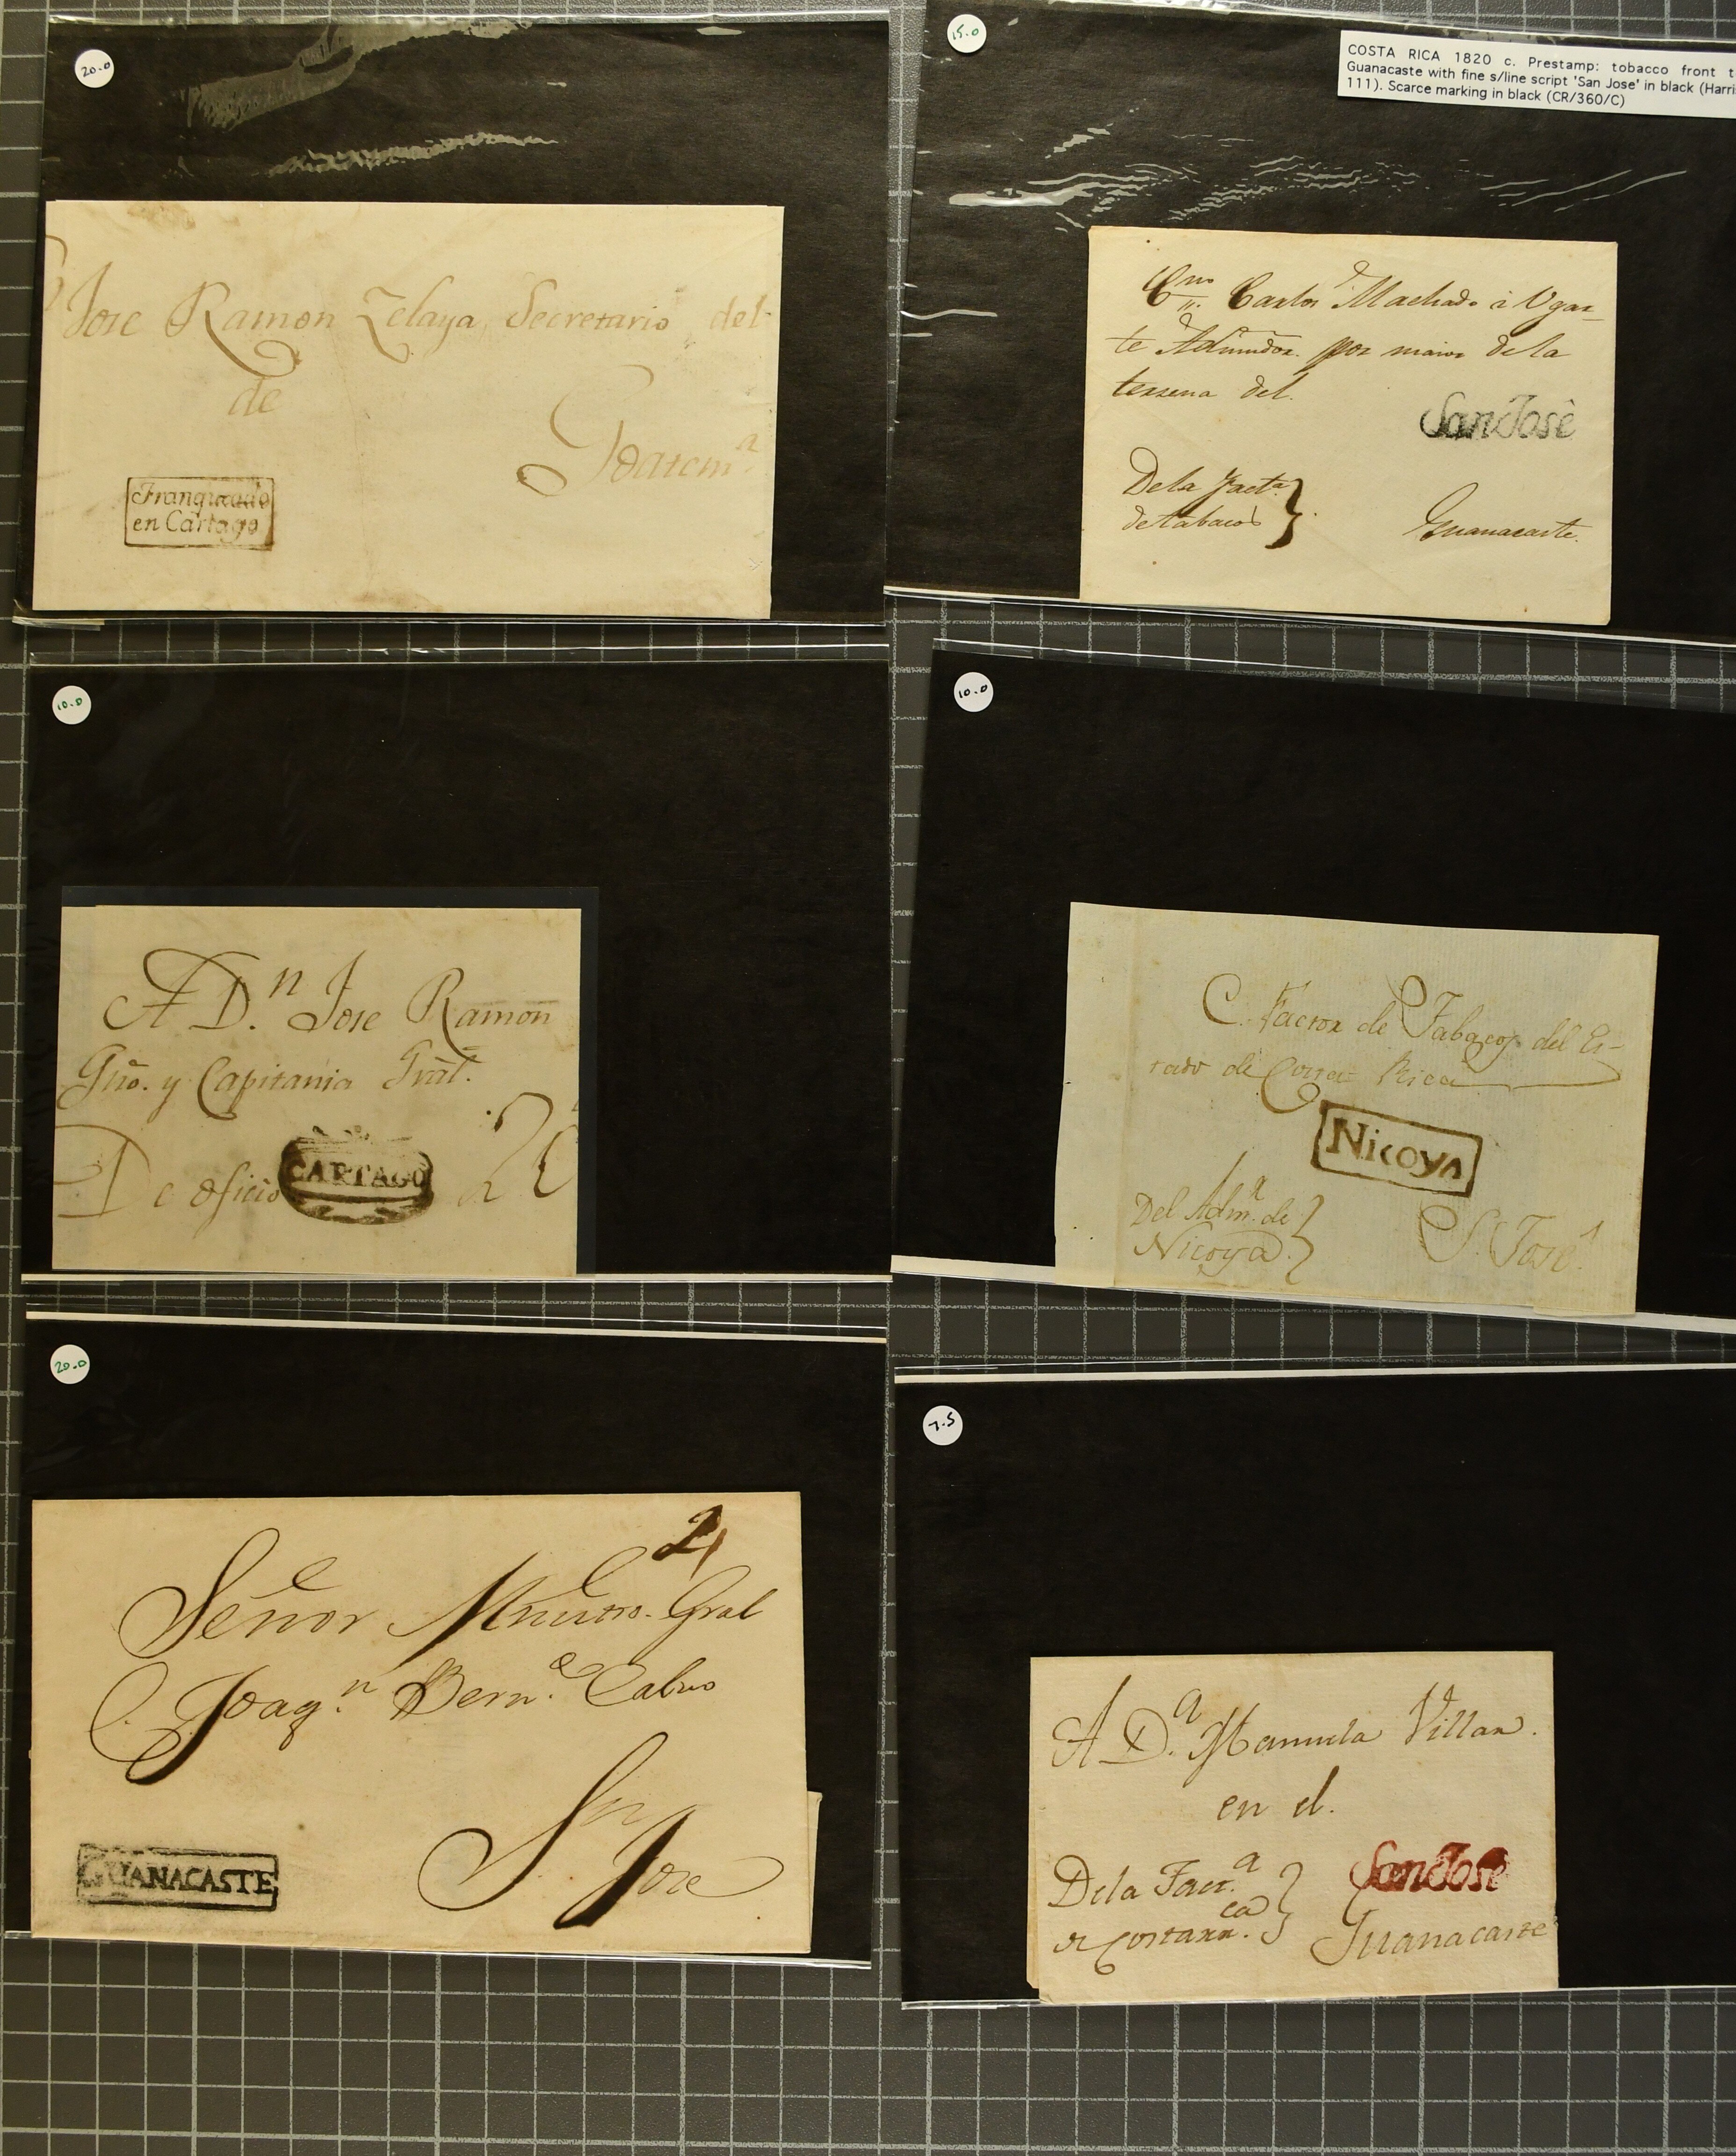 20.0
Jose Ramon Zelaya, Secretario del
de
Goatem.a
Franqueado
en Cartago
15.0
COSTA RICA 1820 c. Prestamp: tobacco front t
Guanacaste with fine s/line script 'San Jose' in black (Harri
111). Scarce marking in black (CR/360/C)
Carlos Machado i Ugar
te Admndor. por maior de la
tersena del.
San José
De la Fact.a
de tabacos
Guanacaste.
10.0
A D.n Jose Ramon
Gño. y Capitania Gral.
De oficio
CARTAGO
10.0
C. Factor de Tabacos del Es-
tado de Costa Rica
Nicoya
Del Adm.r de
Nicoya.
S. José.
20.0
2
Señor Mnistro. Gral
Joaq.n Bern.o Calvo
GUANACASTE
Sn Jose
7.5
A D.a Manuela Villar.
en el.
San José
De la Fact.a
de Costarr.ca
Guanacaste